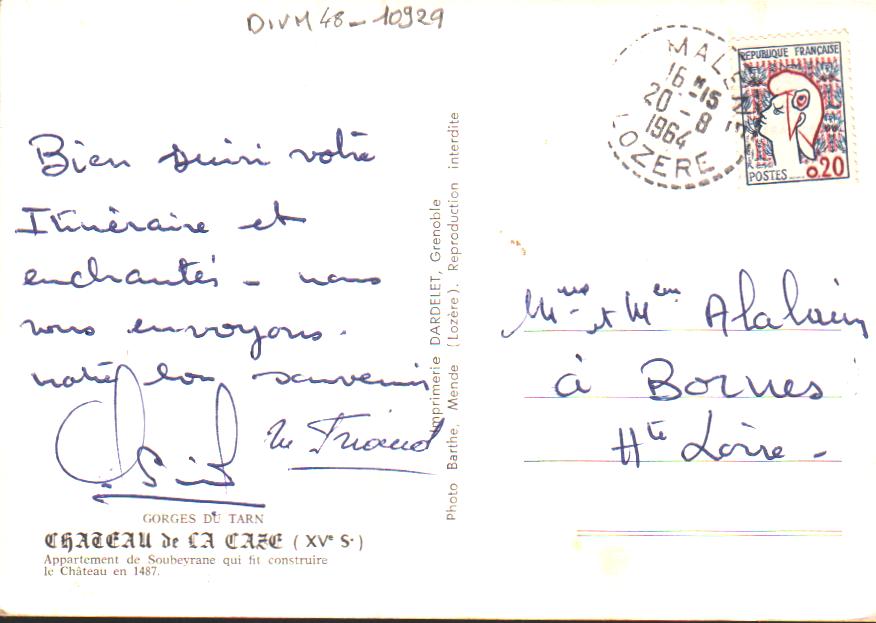 DIVM 48 - 10929
Bien suivi votre
Itinéraire et
enchantés - nous
vous envoyons.
notre bon souvenir
M Friaud
GORGES DU TARN
CHATEAU de LA CAZE (XVe S.)
Appartement de Soubeyrane qui fit construire
le Château en 1487.
Imprimerie DARDELET, Grenoble
Photo Barthe, Mende (Lozère). Reproduction interdite
MALENE
16 H 15
20 - 8
1964
LOZERE
REPUBLIQUE FRANÇAISE
POSTES 0,20
et Alalain
à Bornes
Hte Loire -